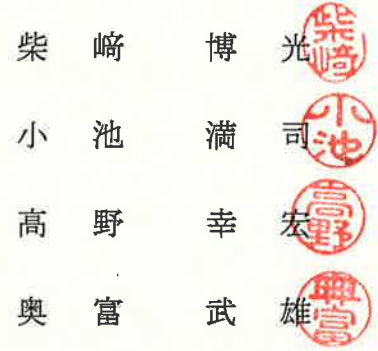 柴﨑 博光 柴﨑
小池 満司 小池
髙野 幸宏 高野
奥富 武雄 奥富